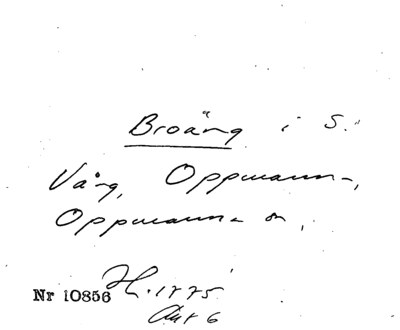 Broäng i S.
Vång, Oppmanna,
Oppmanna sn,
Nr 10856 H. 1775
Akt 6